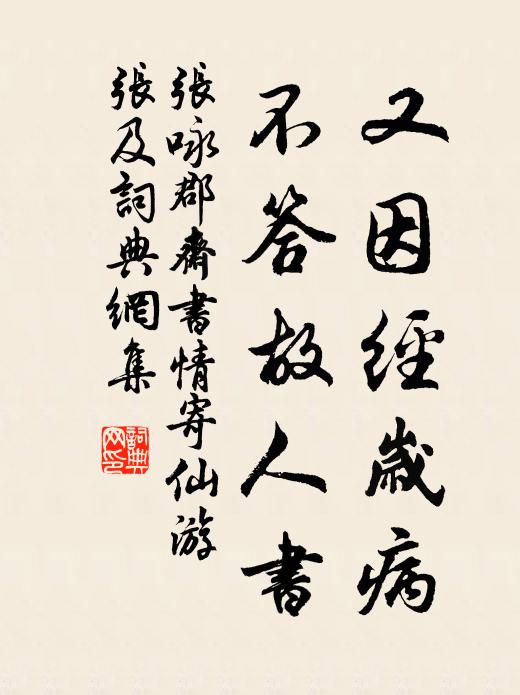 又因經歲病
不答故人書
張咏郡齋書情寄仙游
張及詞典網集
詞典
网印